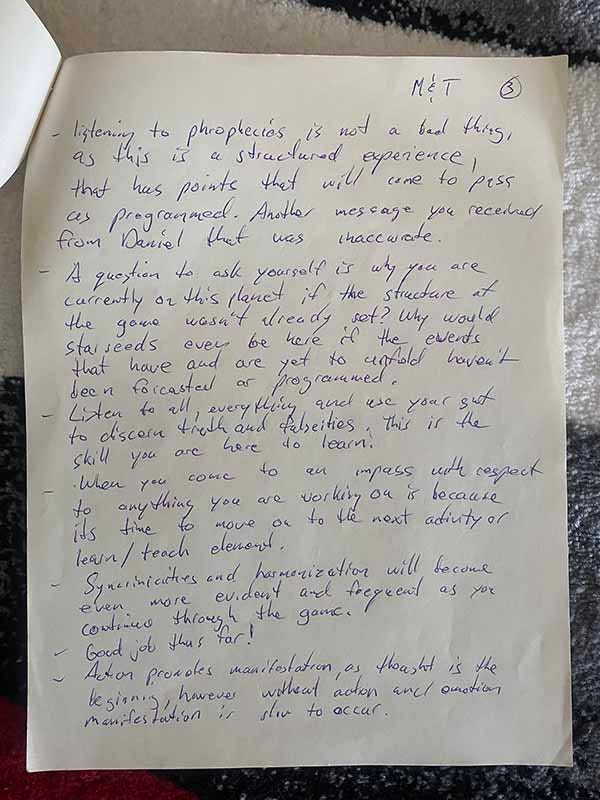 M & T ③
- listening to phrophecies is not a bad thing,
as this is a structured experience,
that has points that will come to pass
as programmed. Another message you received
from Daniel that was inaccurate.
- A question to ask yourself is why you are
currently on this planet if the structure of
the game wasn't already set? Why would
starseeds even be here if the events
that have and are yet to unfold haven't
been forcasted or programmed.
- Listen to all, everything and use your gut
to discern truth and falseities. This is the
skill you are here to learn.
- When you come to an impass with respect
to anything you are working on is because
its time to move on to the next activity or
learn/teach element.
- Syncrinicities and harmonization will become
even more evident and frequent as you
continue through the game.
- Good job thus far!
- Action promotes manifestation, as thought is the
beginning, however without action and emotion
manifestation is slow to occur.